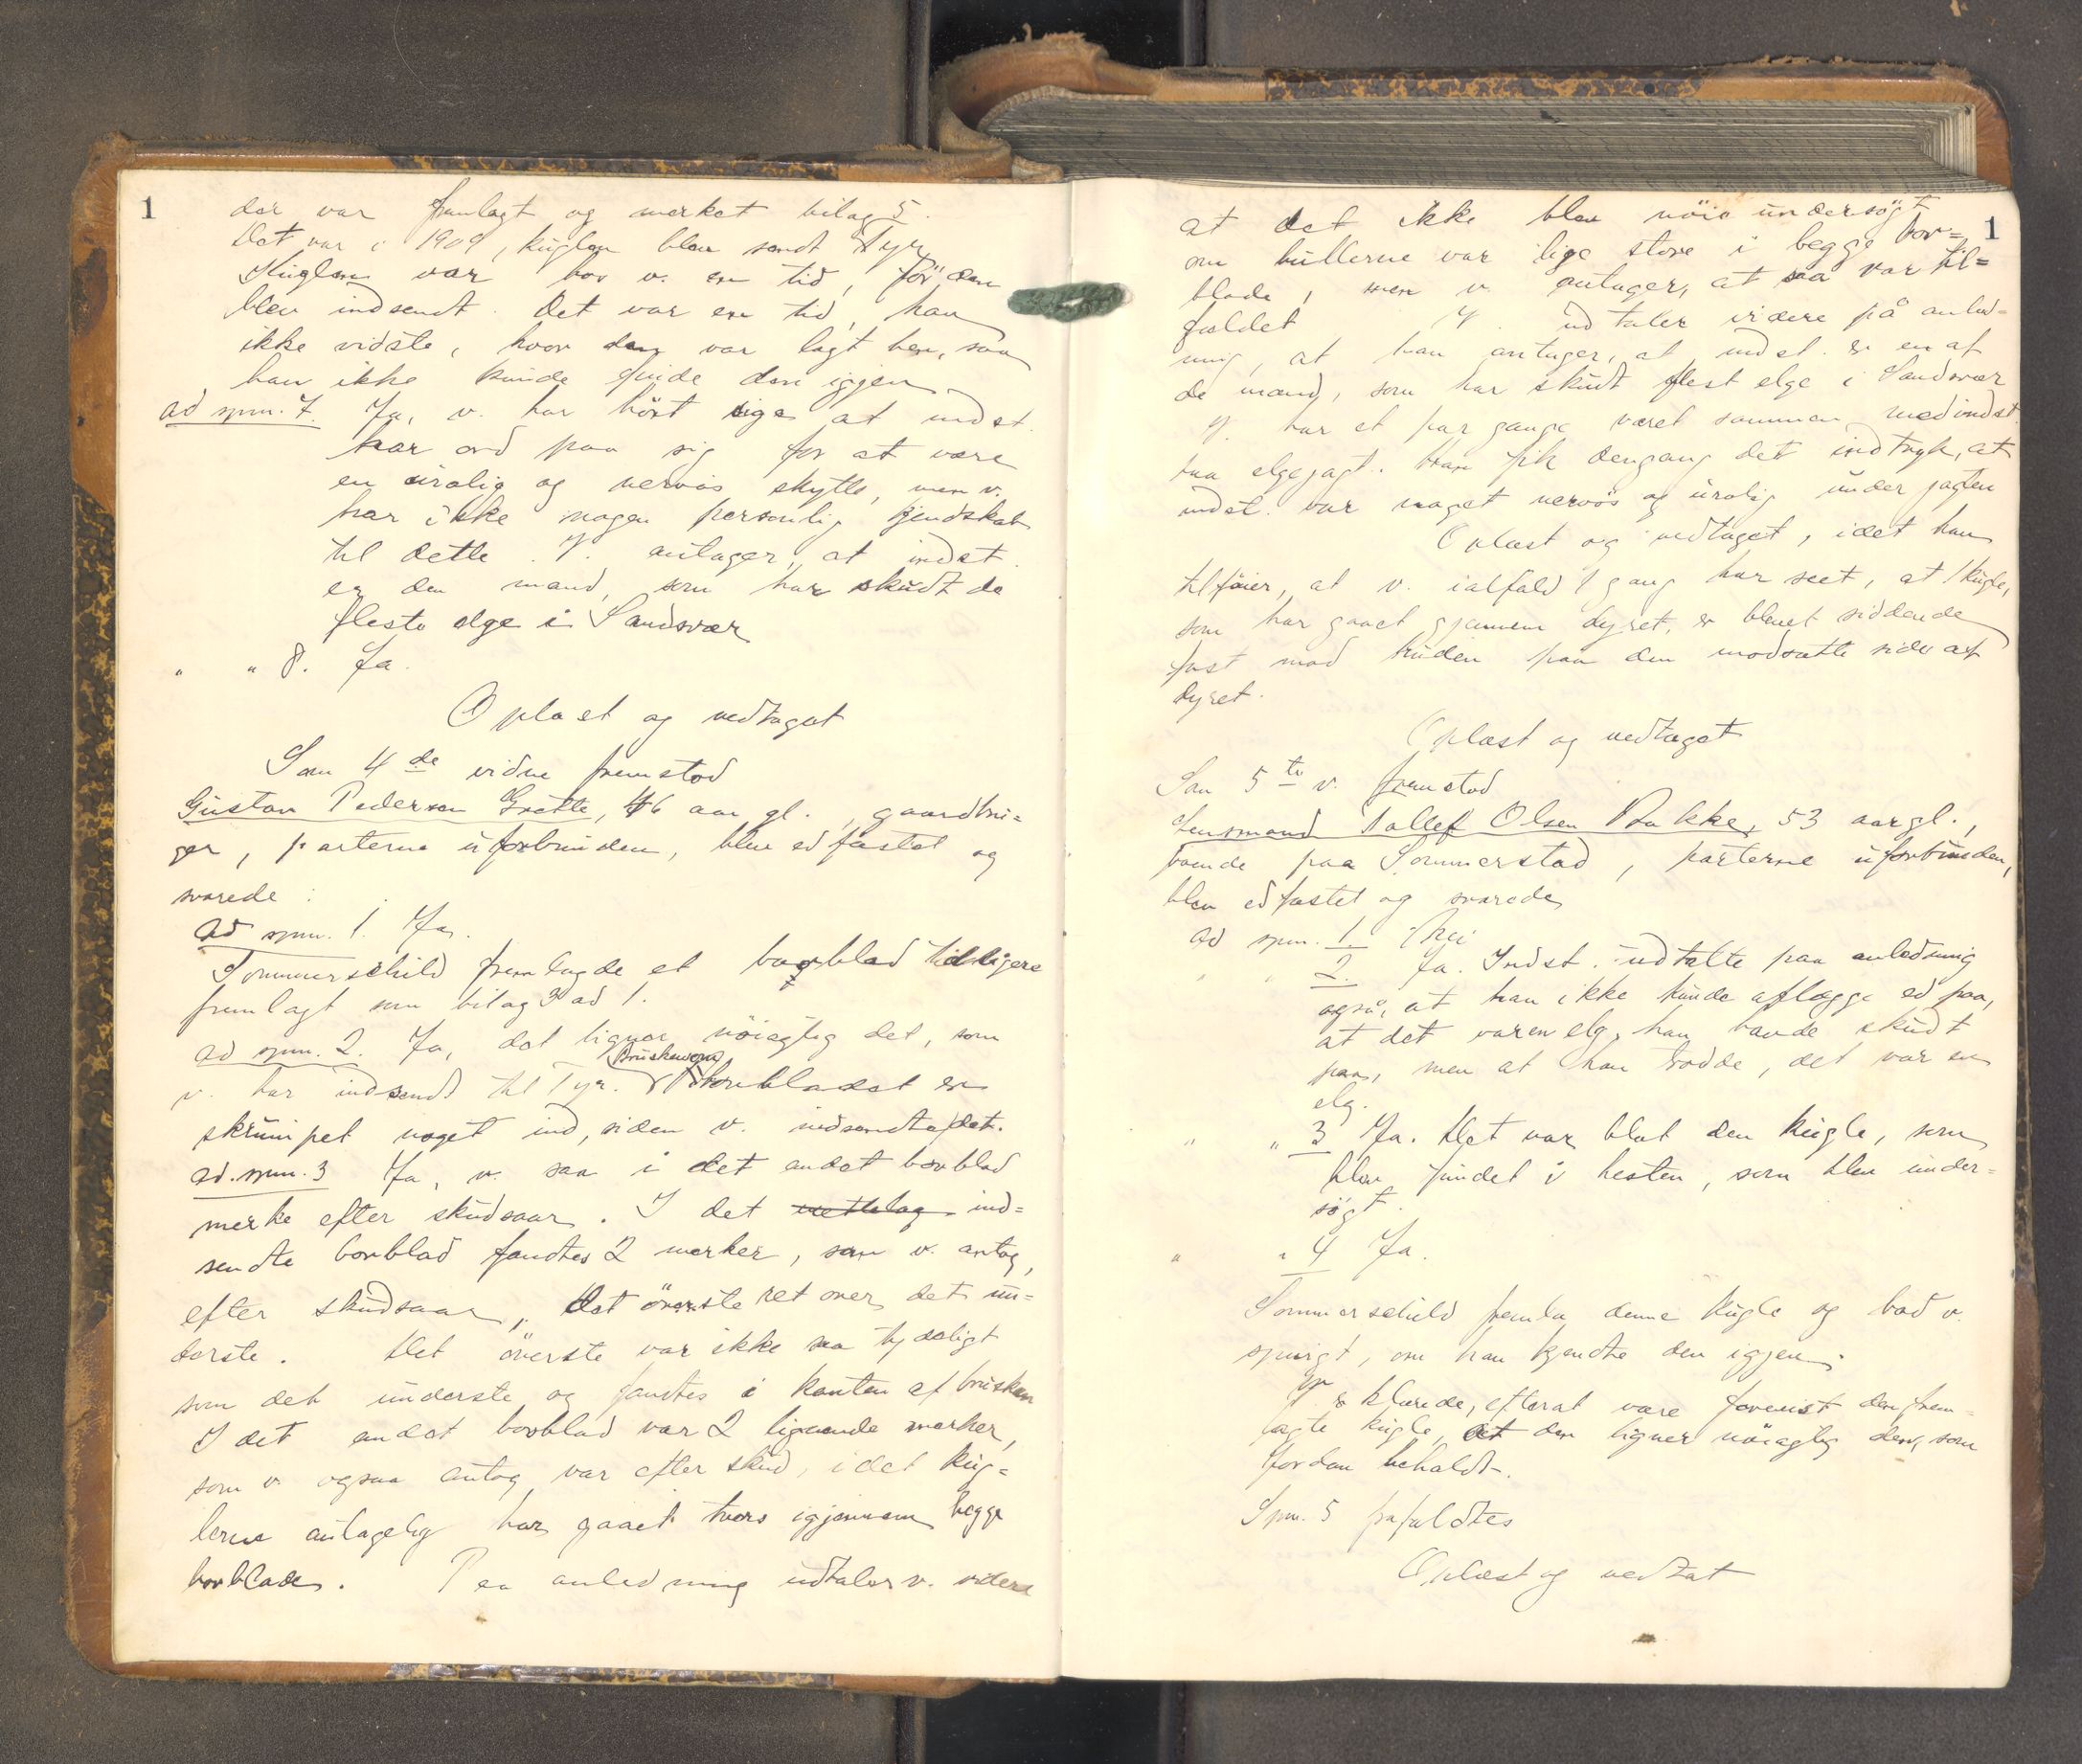 1
der var fremlagt og merket bilag 5.
Det var i 1909, kuglen blev sendt Tyr.
Kuglen var hos v. en tid, før den
blev indsendt. Det var en tid, han
ikke vidste, hvor den var lagt hen, saa
han ikke kunde finde den igjen.
ad spm. 7. Ja, v. har hört sige at indst.
har ord paa sig for at være
en urolig og nervøs skytte, men v.
har ikke nogen personlig kjendskab
til dette. V. antager, at indst.
er den mand, som har skudt de
fleste elge i Sandsvær
" " 8. Ja.
Oplæst og vedtaget
Som 4de vidne fremstod
Gustav Pedersen Grette, 46 aar gl., gaardbru=
ger, parterne uforbunden, blev edfæstet og
svarede:
ad spm. 1. Ja.
Tommerschild fremlagde et bovblad tidligere
fremlagt som bilag 3 ad 1.
ad spm. 2. Ja, det ligner nöiagtig det, som
v. har indsendt til Tyr. Bovbladet er
skrumpet noget ind, siden v. indsendte det.
ad. spm. 3 Ja, v. saa i det andet bovblad
merke efter skudsaar. I det ind=
sendte bovblad fandtes 2 merker, som v. antog,
efter skudsaar, det överste ret over det un=
derste. Det överste var ikke saa tydeligt
som det underste og fandtes i kanten af brusken
I det andet bovblad var 2 lignende merker,
som v. ogsaa antog var efter skud, idet kug=
lerne antagelig har gaaet tvers igjennem begge
bovblade. Paa anledning udtaler v. videre
1
at det ikke blev nöie undersögt
om hullerne var lige store i begge bov=
blade, men v. antager, at saa var til=
fældet V. udtaler videre på anled=
ning, at han antager, at indst. er en af
de mænd, som har skudt flest elge i Sandsvær
V. har et par gange været sammen med indst.
paa elgejagt. Han fik dengang det indtryk, at
indst. var meget nervös og urolig under jagten
Oplæst og vedtaget, idet han
tilföier, at v. ialfald 1 gang har seet, at 1 kugle,
som har gaaet gjennem dyret, er blevet siddende
fast mod huden paa den modsatte side af
dyret.
Oplæst og vedtaget
Som 5te v. fremstod
Lensmand Tollef Olsen Bakke, 53 aar gl.,
boende paa Sommerstad, parterne uforbunden,
blev edfæstet og svarede
ad spm. 1. Nei
" " 2. Ja. Indst. udtalte paa anledning
også, at han ikke kunde aflægge ed paa,
at det var en elg, han havde skudt
paa, men at han trodde, det var en
elg.
" " 3 Ja. Det var blot den kugle, som
blev fundet i hesten, som blev under=
søgt.
" " 4 Ja.
Tommerschild fremla denne kugle og bad v.
spurgt, om han kjendte den igjen.
V. erklærede, efter at være forevist den frem=
lagte kugle, at den ligner nöiagtig den, som
Spm. 5 frafaldtes
Oplæst og vedtat